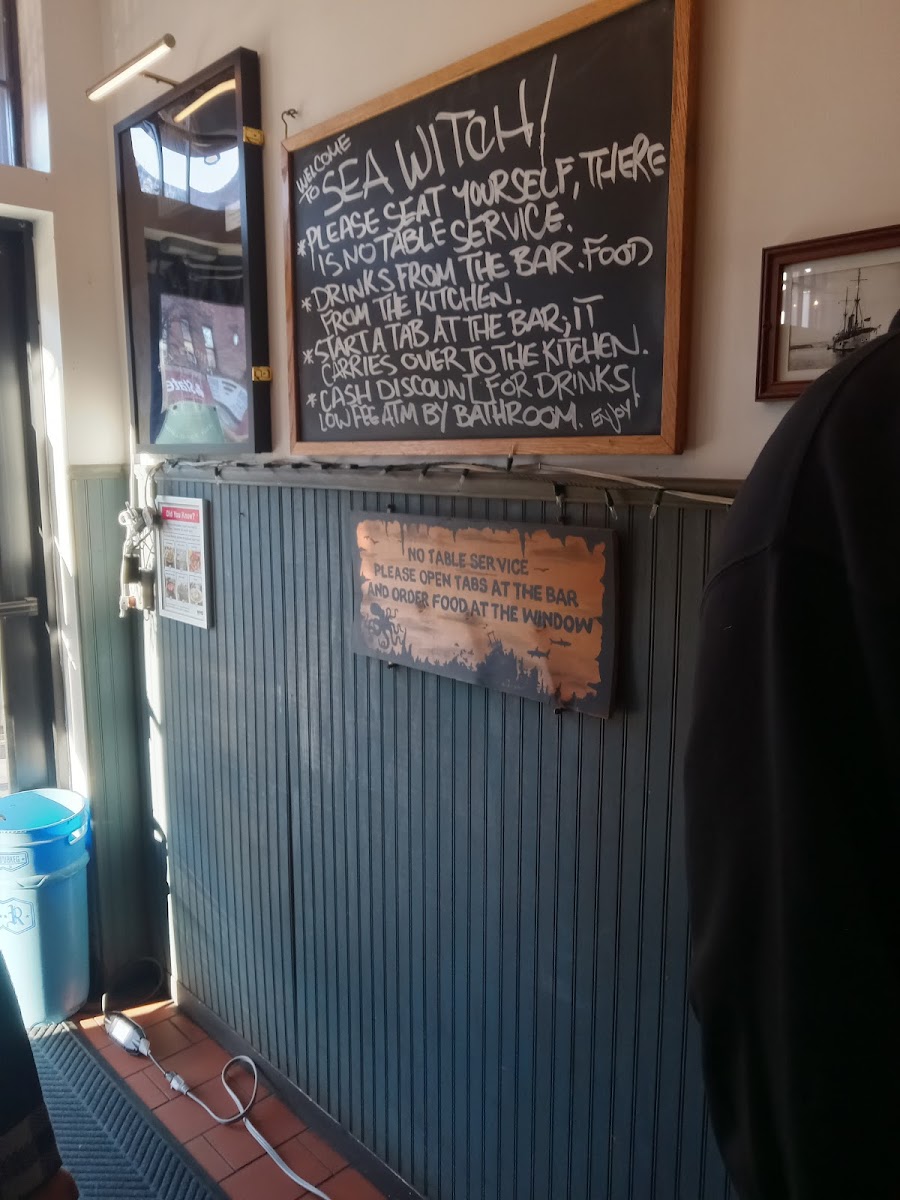 WELCOME
TO SEA WITCH!
*PLEASE SEAT YOURSELF, THERE
IS NO TABLE SERVICE.
*DRINKS FROM THE BAR. FOOD
FROM THE KITCHEN.
*START A TAB AT THE BAR; IT
CARRIES OVER TO THE KITCHEN.
*CASH DISCOUNT FOR DRINKS/
LOW FEE ATM BY BATHROOM. ENJOY!
Did You Know?
NO TABLE SERVICE
PLEASE OPEN TABS AT THE BAR
AND ORDER FOOD AT THE WINDOW
R